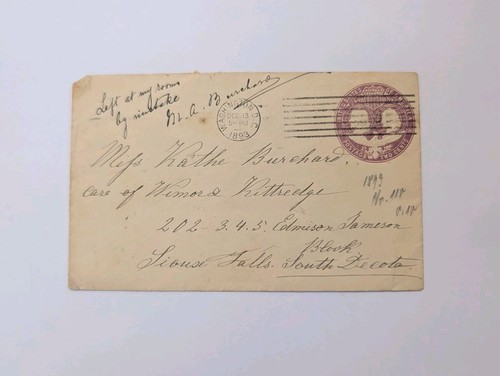 Left at my rooms
by mistake
H. A. Burchard
WASHINGTON, D.C.
DEC 13
5-PM
1893
TWO CENTS
Mifs Kathe Burchard.
care of Wimord Kittredge
202-3.4.5. Edmison Jameson
Block
Sioux Falls. South Decota.
1893